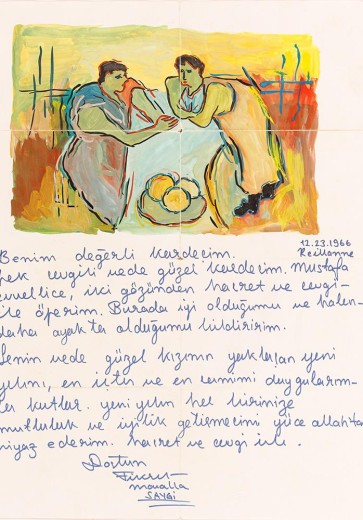 12.23.1966
Reillanne
Benim değerli kardecim.
pek cevgili vede güzel kardecim. Mustafa
evvellice, iki gözünden hacret ve cevgi-
ile öperim. Burada iyi olduğumu ve halen-
daha ayakta olduğumu bildiririm.
Senin vede güzel kızının yaklaşan yeni
yılını, en içten ve en camimi duygularım-
la kutlar. yeni yılın hel birimize
mutluluk ve iyilik getirmecini yüce allahtan
niyaz ederim. hacret ve cevgi ile.
Dostun
Fikret
Moualla
SAYGI